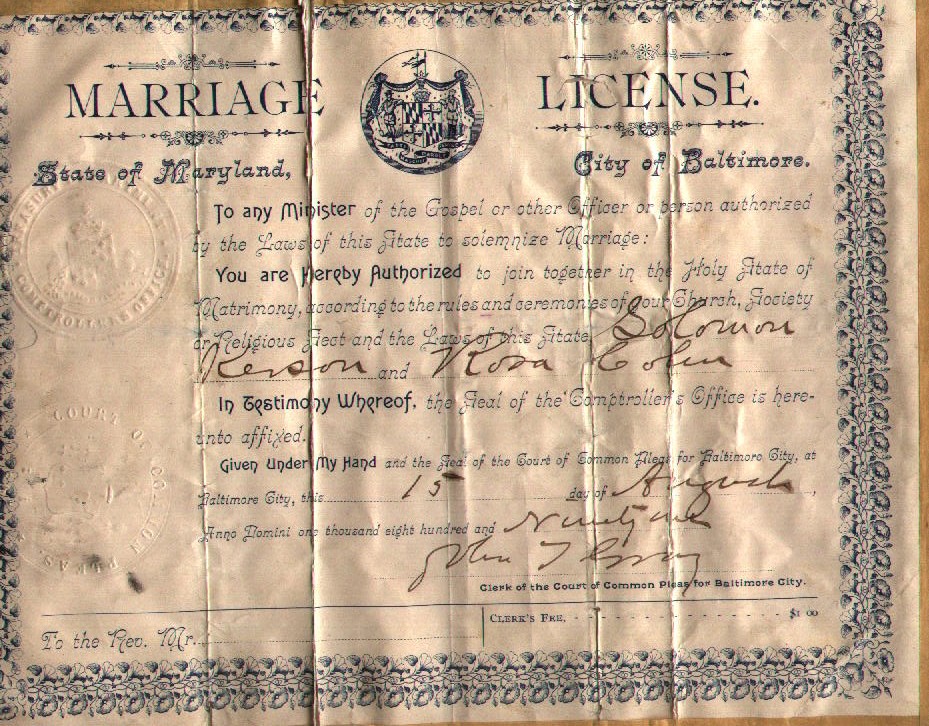 MARRIAGE LICENSE.
State of Maryland, City of Baltimore.
To any Minister of the Gospel or other Officer or person authorized
by the Laws of this State to solemnize Marriage:
You are Hereby Authorized to join together in the Holy State of
Matrimony, according to the rules and ceremonies of your Church, Society
or Religious Sect and the Laws of this State, Solomon
Kerson and Rosa Cohn
In Testimony Whereof, the Seal of the Comptroller's Office is here-
unto affixed.
Given Under My Hand and the Seal of the Court of Common Pleas for Baltimore City, at
Baltimore City, this 15 day of August,
Anno Domini one thousand eight hundred and Ninety
John T Gray
Clerk of the Court of Common Pleas for Baltimore City.
CLERK'S FEE, $1 00
To the Rev. Mr.
TREASURY
COMPTROLLERS OFFICE
COURT OF COMMON PLEAS